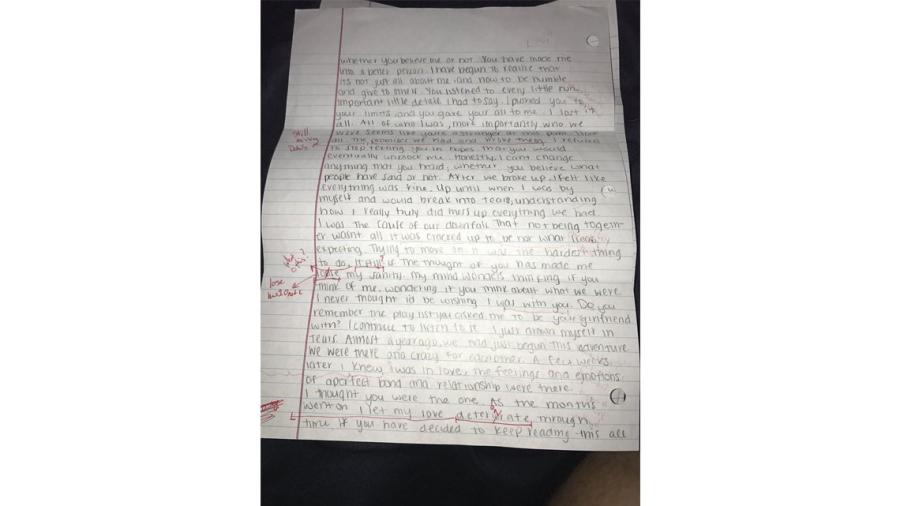 whether you believe me or not. You have made me
into a better person. I have begun to realize that
its not just all about me, and how to be humble
and give to
You listened to every little
important little detail I had to say. I pushed you to
your limits, and you gave your all to me. I lost it
all. All of who I was, more importantly, who we
were seems like you're a stranger at this point.
all the promises we had and broke them. I refused
to stop texting you in hopes that you would
eventually unblock me. Honestly, I cant change
anything that you heard, whether you believe what
people have said or not. After we broke up, I felt like
everything was fine. Up until when I was by
myself and would break into tears, understanding
how I really truly did mess up everything we had.
I was the cause of our downfall. That not being togeth-
er wasnt all it was cracked up to be nor what
expecting. Trying to move on it was the hardest thing
to do, it still is. The thought of you has made me
my sanity, my mind wonders thinking if you
lose
think of me, wondering if you think about what we were
I never thought id be wishing I was with you. Do you
remember the playlist you asked me to be your girlfriend
with? I continue to listen to it. I just drown myself in
tears. Almost a year ago, we had just begun this adventure
we were there and crazy for eachother. A few weeks
later I knew, I was in love, the feelings and emotions
of a perfect bond and relationship were there.
I thought you were the one. As the months
went on I let my love through
time. If you have decided to keep reading this all